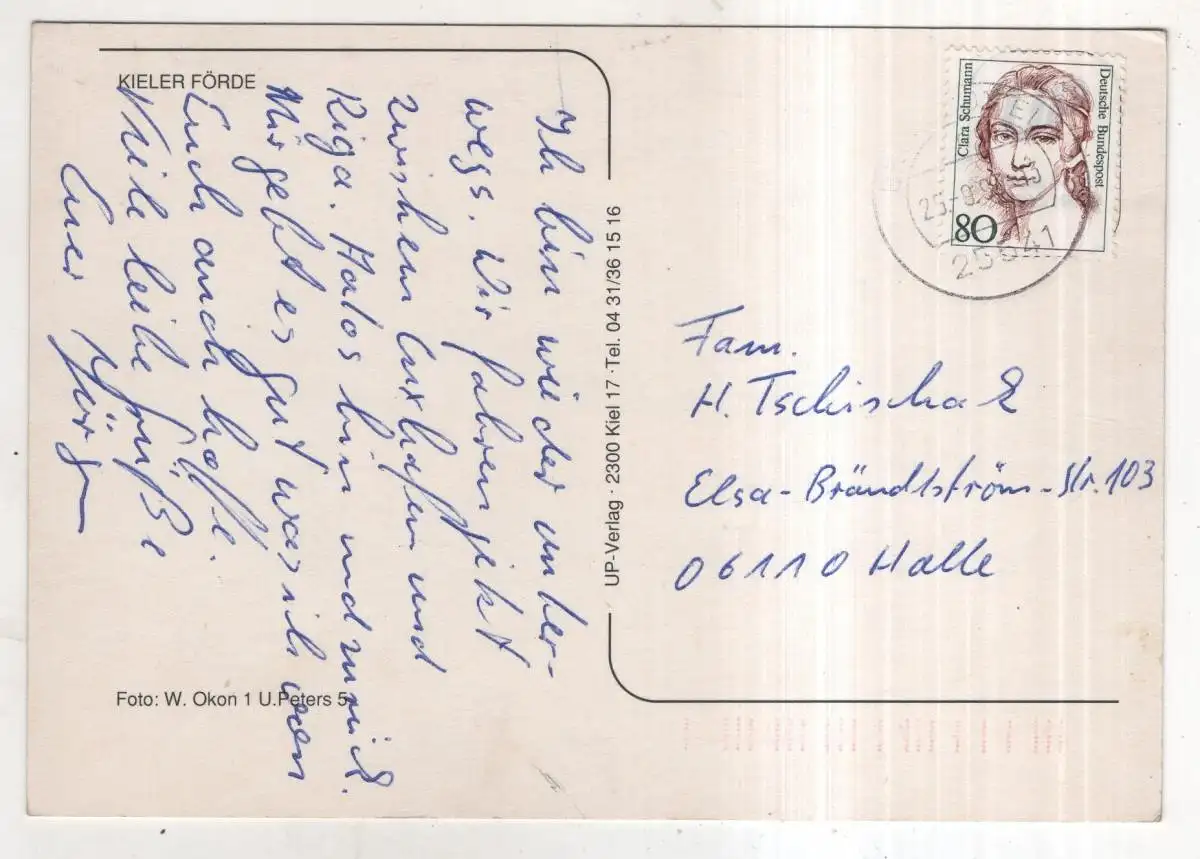 KIELER FÖRDE
Ich bin wieder unter-
wegs. Wir fahren jetzt
zwischen Cuxhafen und
Riga. Halos hin und zurück.
Mir geht es gut was ich von
Euch auch hoffe.
Viele liebe Grüße
Euer Jürgen
Foto: W. Okon 1 U.Peters 5
UP-Verlag · 2300 Kiel 17 · Tel. 04 31/36 15 16
Clara Schumann
Deutsche Bundespost
80
25541
Fam.
H. Tschischak
Elsa-Brändtström-Str. 103
06110 Halle